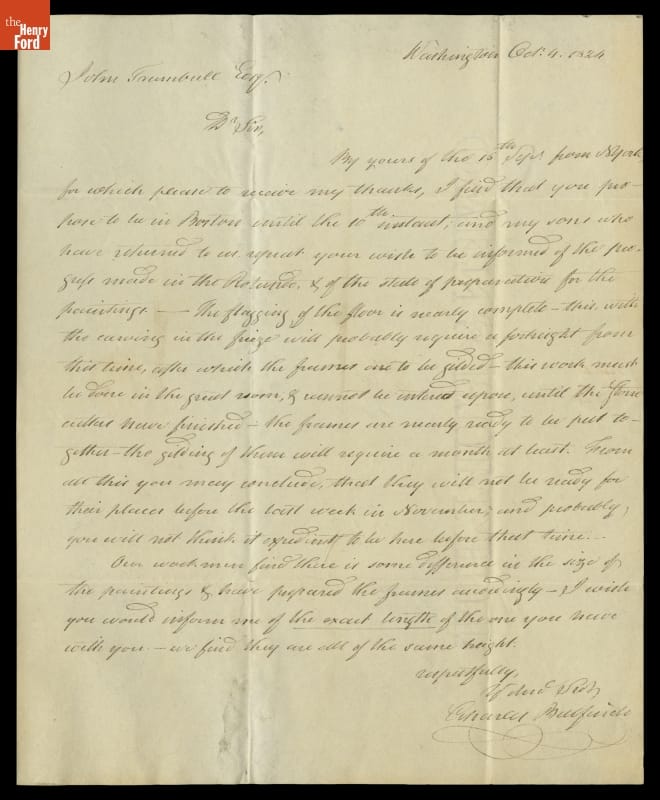 the
Henry
Ford
Washington Oct: 4. 1824
John Trumbull Esq.
Dr Sir,
By yours of the 16th Sept from NYork
for which please to receive my thanks, I find that you pro-
pose to be in Boston until the 10th instant; and my sons who
have returned to us, repeat your wish to be informed of the pro-
gress made in the Rotunda, & of the state of preparation for the
paintings — The flagging of the floor is nearly complete – this, with
the carving in the frieze will probably require a fortnight from
this time, after which the frames are to be gilded – this work must
be done in the great room, & cannot be entered upon, until the stone
cutters have finished – the frames are nearly ready to be put to-
gether – the gilding of them will require a month at least. From
all this you may conclude, that they will not be ready for
their places before the last week in November; and probably,
you will not think it expedient, to be here before that time. –
Our workmen find there is some difference in the size of
the paintings & have prepared the frames accordingly – I wish
you would inform me of the exact length of the one you have
with you. – we find they are all of the same height.
respectfully,
Yr obed Servt
Charles Bulfinch